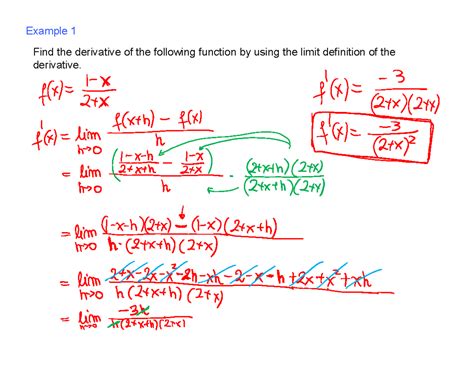 Example 1
Find the derivative of the following function by using the limit definition of the
derivative.
f(x) = (1-x)/(2+x)
f'(x) = lim h→0 (f(x+h) - f(x))/h
= lim h→0 ((1-x-h)/(2+x+h) - (1-x)/(2+x))/h · ((2+x+h)(2+x))/((2+x+h)(2+x))
= lim h→0 ((1-x-h)(2+x) - (1-x)(2+x+h))/(h·(2+x+h)(2+x))
= lim h→0 (2+x-2x-x²-2h-xh-2-x-h+2x+x²+xh)/(h(2+x+h)(2+x))
= lim h→0 (-3h)/(h(2+x+h)(2+x))
f'(x) = (-3)/((2+x)(2+x))
f'(x) = (-3)/((2+x)²)